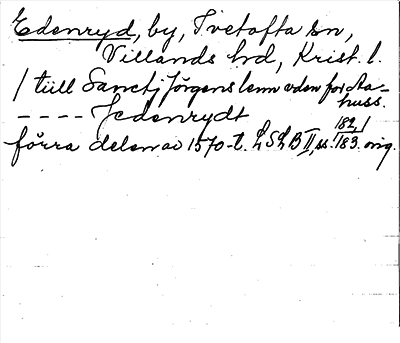 Edenryd, by, Ivetofta sn,
Villands hd, Krist. l.
/ tiill Sanctj Jörgens lenn vden for Aa-
huss.
---- Jedenrydt
förra delen av 1570-t. LSLB II, ss. 182/183. orig.